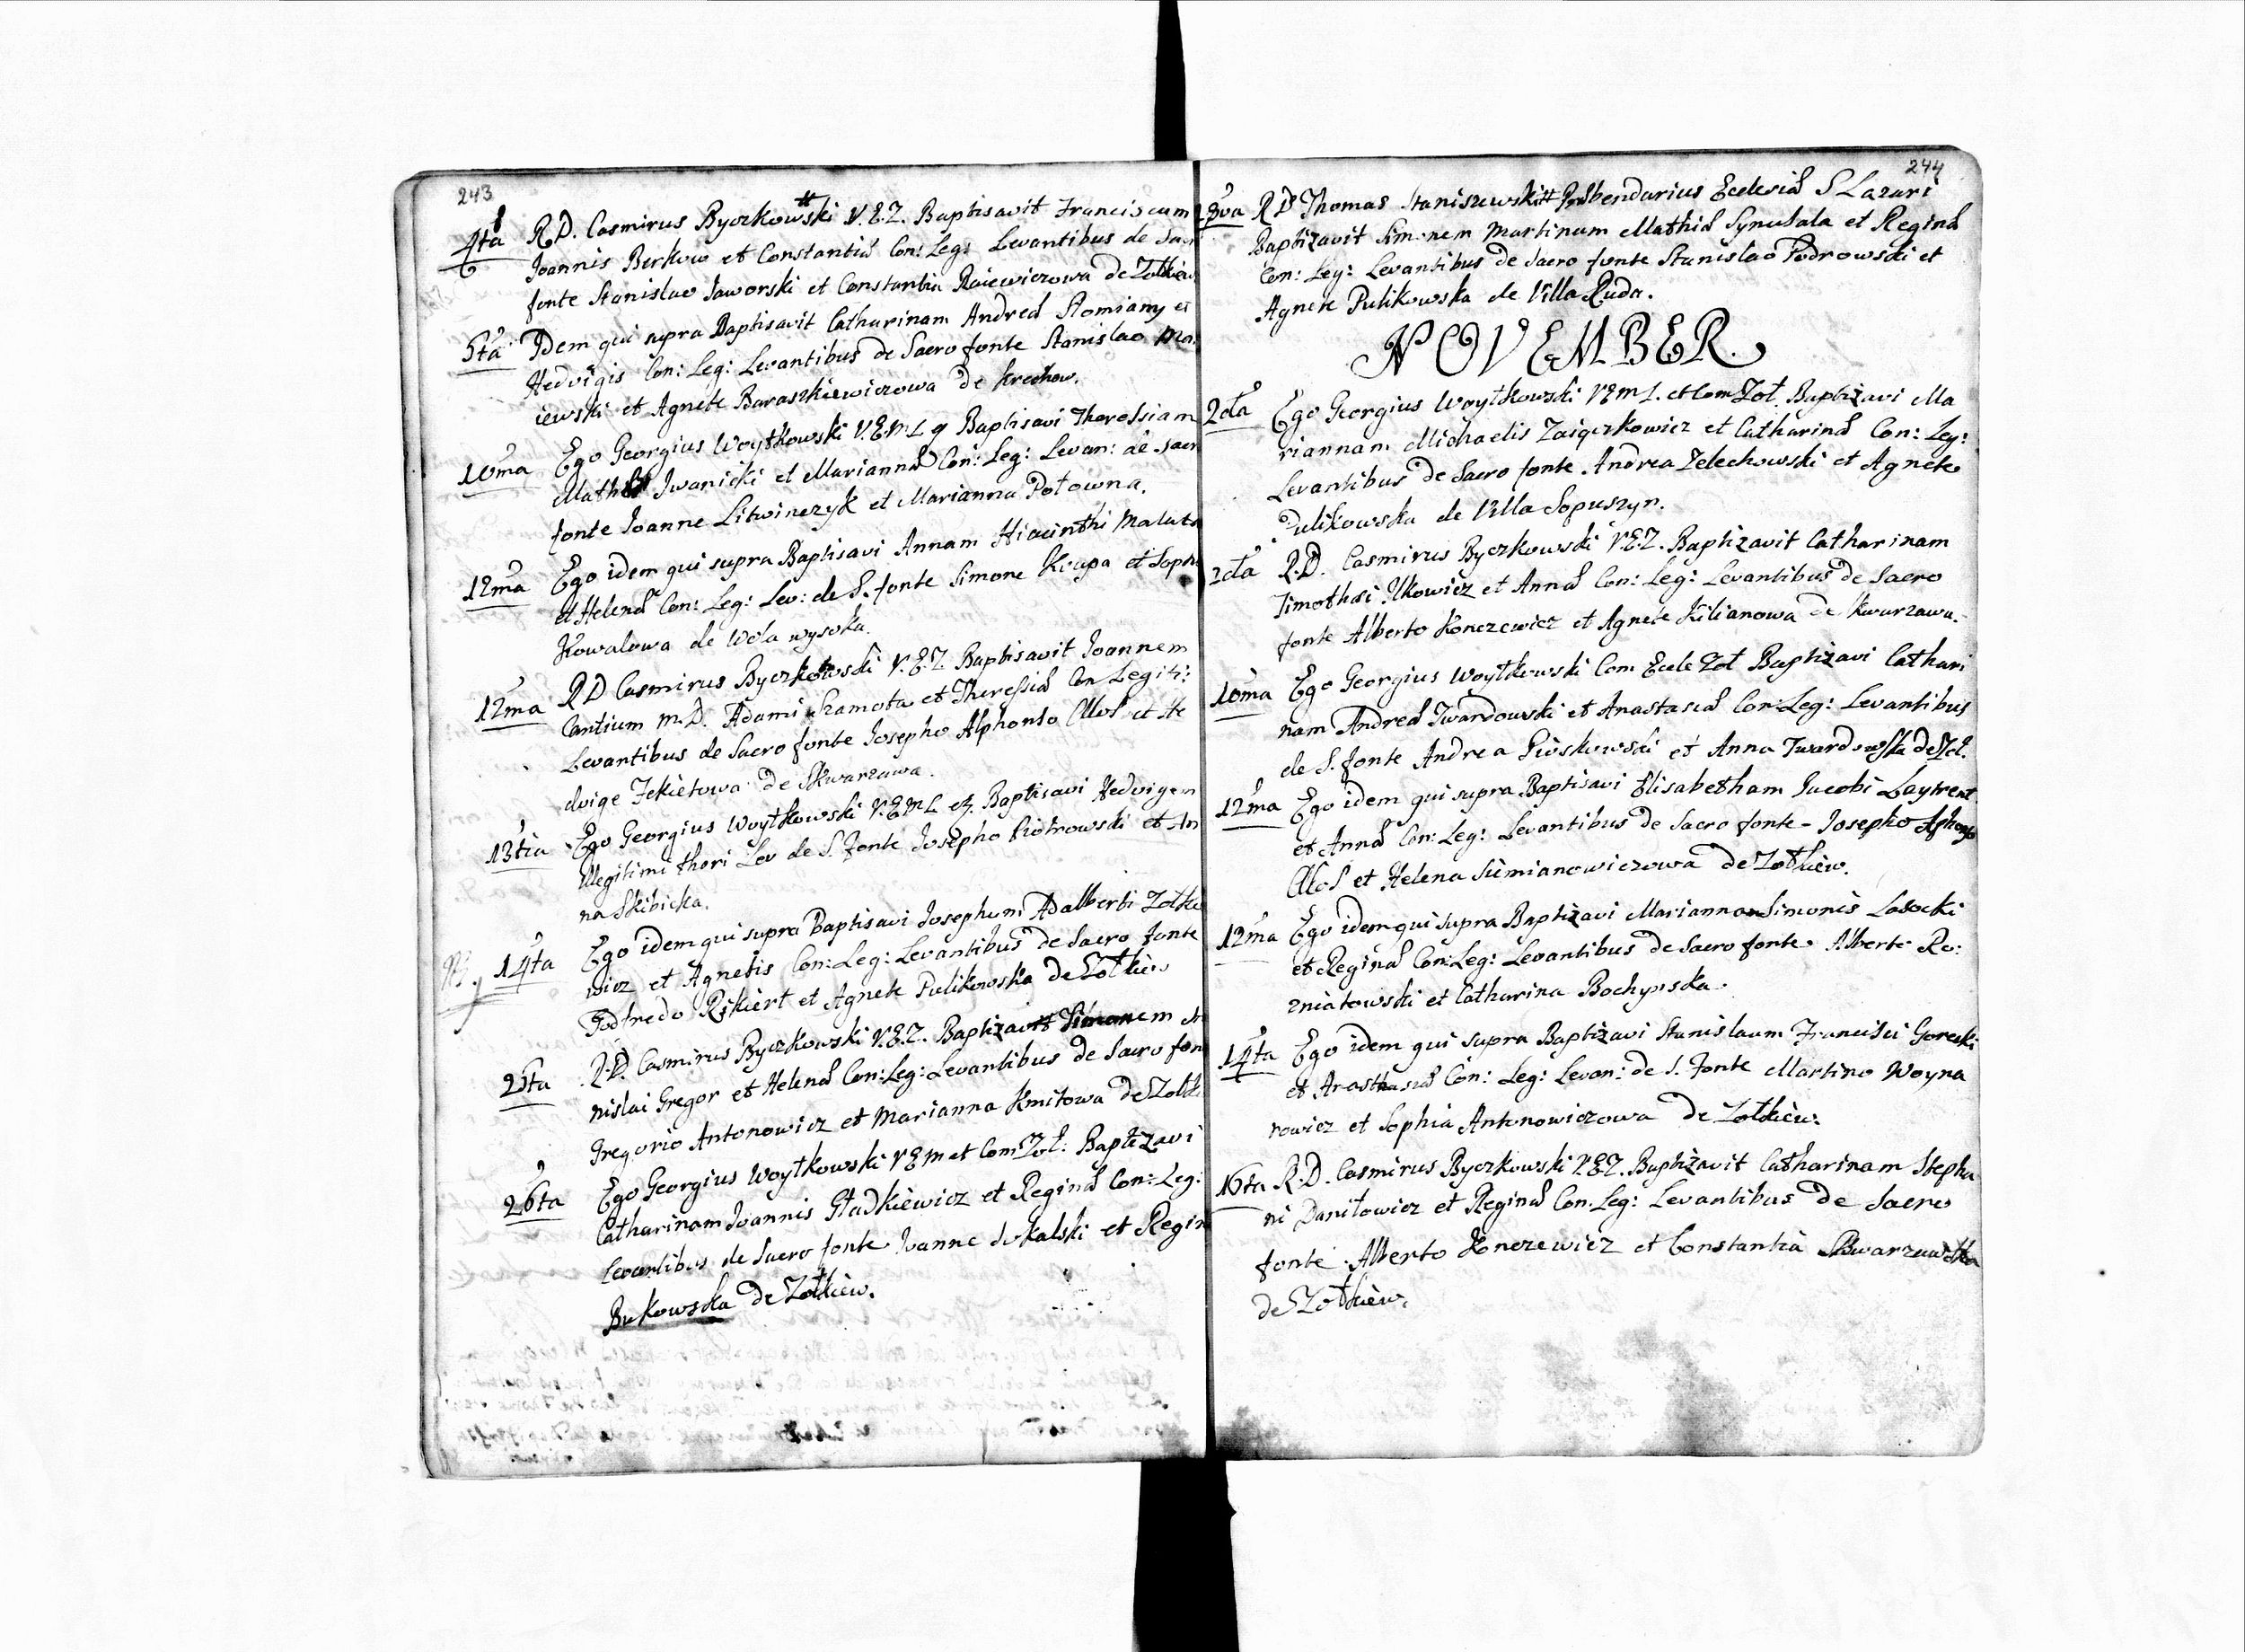 243
4ta R.D. Casmirus Byczkowski V.E.Z. Baptisavit Franciscum
Joannis Berkow et Constantiæ Con: Leg: Levantibus de Sac
fonte Stanislao Jaworski et Constantia Raiewiczowa de Zołkiew
5ta Idem qui supra Baptisavit Catharinam Andreæ Romiany et
Hedvigis Con: Leg: Levantibus de Sacro fonte Stanislao Ma
iewski et Agnete Baraszkiewiczowa de Krechow.
10ma Ego Georgius Woytkowski V.E.M.L. Baptisavi Theressiam
Iwanicki et Mariannæ Con: Leg: Levan: de Sacr
fonte Joanne Litwinczyk et Marianna Potowna.
12ma Ego idem qui supra Baptisavi Annam Hiacinthi
et Helenæ Con: Leg: Lev: de S. fonte Simone Krupa et Soph
Kowalowa de Wola wysoka.
12ma R D Casmirus Byczkowski V.E.Z. Baptisavit Joannem
Cantium M.D. Adami Szamota et Theressiæ Con Legiti:
Levantibus de Sacro fonte Josepho Alphonso Allos et He
dvige Fekietowa de Skwarzawa.
13tia Ego Georgius Woytkowski V.E.M.L. Baptisavi Hedvigem
Illegitimi thori Lev de S. Fonte Josepho Piotrowski et An
na Skibicka.
14ta Ego idem qui supra Baptisavi Josephum Adalberti Zołkie
wicz et Agnetis Con: Leg: Levantibus de Sacro fonte
Godfredo Rikiert et Agnete Pulikowska de Zołkiew
25ta R.D. Casmirus Byczkowski V.E.Z. Baptizavit Simonem Sta
nislai Gregor et Helenæ Con: Leg: Levantibus de Sacro fon
Gregorio Antonowicz et Marianna Kmitowa de Zołki
26ta Ego Georgius Woytkowski V E M et Com Zoł: Baptizavi
Catharinam Joannis Gładkiewicz et Reginæ Con: Leg:
Levantibus de Sacro fonte Joanne Sokalski et Regin
Bukowska de Zołkiew.
244
28va R D Thomas Staniszewski Præbendarius Ecclesiæ S Lazari
Baptizavit Simonem Martinum Mathiæ Synusala et Reginæ
Con: Leg: Levantibus de Sacro fonte Stanislao Podrowski et
Agnete Pulikowska de Villa Ruda.
NOVEMBER.
2da Ego Georgius Woytkowski V E M L. et Com Zoł. Baptizavi Ma
riannam Michaelis Zaiączkowicz et Catharinæ Con: Leg:
Levantibus de Sacro fonte Andrea Zelechowski et Agnete
Pulikowska de Villa Sopuszyn.
2da R.D. Casmirus Byczkowski V.E.Z. Baptizavit Catharinam
Timothæi Ilkowicz et Annæ Con: Leg: Levantibus de Sacro
fonte Alberto Konczewicz et Agnete Kilianowa de Kwarzawa.
10ma Ego Georgius Woytkowski Com Eccle Zoł Baptizavi Cathari
nam Andreæ Twardowski et Anastasiæ Con: Leg: Levantibus
de S. fonte Andrea Pioskowski et Anna Twardowska de Zoł.
12ma Ego idem qui supra Baptisavi Elisabetham Jacobi
et Annæ Con: Leg: Levantibus de Sacro fonte - Josepho Alphonso
Allos et Helena Siemianowiczowa de Zołkiew.
12ma Ego idem qui supra Baptizavi Mariannam Simonis Lasocki
et Reginæ Con: Leg: Levantibus de Sacro fonte Alberto Ro:
zniatowski et Catharina Bochynska.
14ta Ego idem qui supra Baptizavi Stanislaum Francisci Gorecki
et Anastasiæ Con: Leg: Levan: de S. Fonte Martino Woyna
rowicz et Sophia Antonowiczowa de Zołkiew.
16ta R.D. Casmirus Byczkowski V.E.Z. Baptizavit Catharinam Stepha
ni Daniłowicz et Reginæ Con: Leg: Levantibus de Sacro
fonte Alberto Konczewicz et Constantia
de Zołkiew.